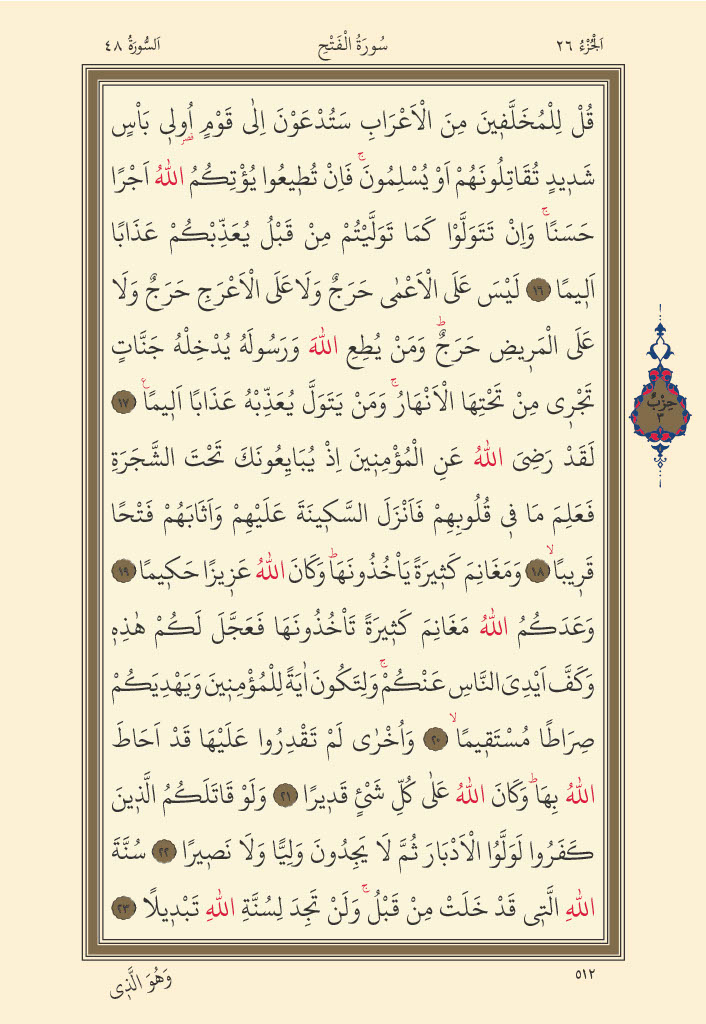 اَلْجُزْءُ ٢٦ سُورَةُ الْفَتْحِ اَلسُّورَةُ ٤٨
قُلْ لِلْمُخَلَّفٖينَ مِنَ الْاَعْرَابِ سَتُدْعَوْنَ اِلٰى قَوْمٍ اُو۬لٖي بَاْسٍ
قصر
شَدٖيدٍ تُقَاتِلُونَهُمْ اَوْ يُسْلِمُونَۚ فَاِنْ تُطٖيعُوا يُؤْتِكُمُ اللّٰهُ اَجْرًا
حَسَنًاۚ وَاِنْ تَتَوَلَّوْا كَمَا تَوَلَّيْتُمْ مِنْ قَبْلُ يُعَذِّبْكُمْ عَذَابًا
اَلٖيمًا ١٦ لَيْسَ عَلَى الْاَعْمٰى حَرَجٌ وَلَا عَلَى الْاَعْرَجِ حَرَجٌ وَلَا
عَلَى الْمَرٖيضِ حَرَجٌؕ وَمَنْ يُطِعِ اللّٰهَ وَرَسُولَهُ يُدْخِلْهُ جَنَّاتٍ
تَجْرٖي مِنْ تَحْتِهَا الْاَنْهَارُۚ وَمَنْ يَتَوَلَّ يُعَذِّبْهُ عَذَابًا اَلٖيمًا ١٧
لَقَدْ رَضِيَ اللّٰهُ عَنِ الْمُؤْمِنٖينَ اِذْ يُبَايِعُونَكَ تَحْتَ الشَّجَرَةِ
فَعَلِمَ مَا فٖي قُلُوبِهِمْ فَاَنْزَلَ السَّكٖينَةَ عَلَيْهِمْ وَاَثَابَهُمْ فَتْحًا
قَرٖيبًاۙ ١٨ وَمَغَانِمَ كَثٖيرَةً يَاْخُذُونَهَاؕ وَكَانَ اللّٰهُ عَزٖيزًا حَكٖيمًا ١٩
وَعَدَكُمُ اللّٰهُ مَغَانِمَ كَثٖيرَةً تَاْخُذُونَهَا فَعَجَّلَ لَكُمْ هٰذِهٖ
وَكَفَّ اَيْدِيَ النَّاسِ عَنْكُمْۚ وَلِتَكُونَ اٰيَةً لِلْمُؤْمِنٖينَ وَيَهْدِيَكُمْ
صِرَاطًا مُسْتَقٖيمًاۙ ٢٠ وَاُخْرٰى لَمْ تَقْدِرُوا عَلَيْهَا قَدْ اَحَاطَ
اللّٰهُ بِهَاؕ وَكَانَ اللّٰهُ عَلٰى كُلِّ شَيْءٍ قَدٖيرًا ٢١ وَلَوْ قَاتَلَكُمُ الَّذٖينَ
كَفَرُوا لَوَلَّوُا الْاَدْبَارَ ثُمَّ لَا يَجِدُونَ وَلِيًّا وَلَا نَصٖيرًا ٢٢ سُنَّةَ
اللّٰهِ الَّتٖي قَدْ خَلَتْ مِنْ قَبْلُۚ وَلَنْ تَجِدَ لِسُنَّةِ اللّٰهِ تَبْدٖيلًا ٢٣
حِزْبٌ
٣
٥١٢
وَهُوَ الَّذٖي